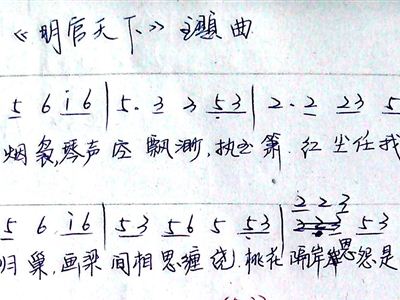 《明官天下》主题曲
5 6 i 6 | 5. 3 3 5 3 | 2. 2 2 3 5
烟袅,琴声空飘渺,执 箫.红尘任我
5 6 i 6 | 5 3 5 6 5 5 3 | 2 2 3 5 3
归巢,画梁间相思缠绕.桃花隔岸 思怨是